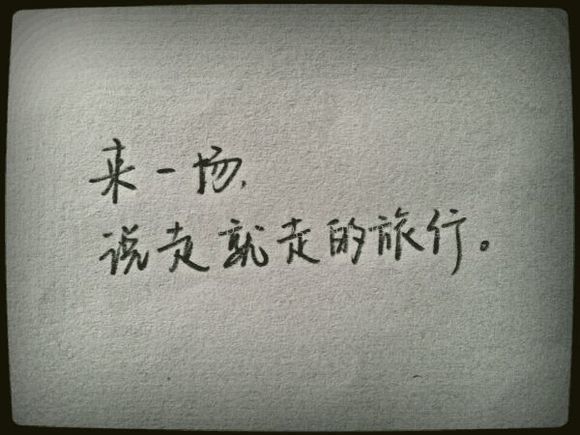 来一场,
说走就走的旅行。